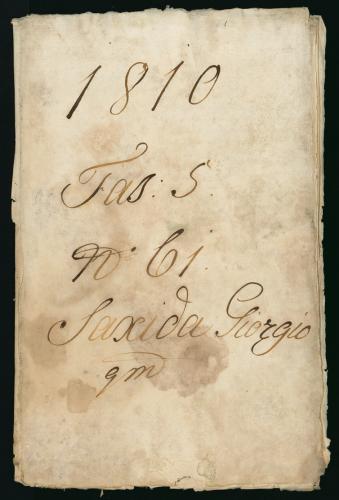 1810
Fas: 5.
N.º 61.
Saxida Giorgio
qm